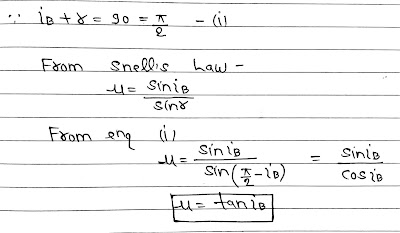 ∵ iB + r = 90 = π/2 - (i)
From Snell's Law -
μ = sin iB / sin r
From enq (i)
μ = sin iB / sin(π/2 - iB) = sin iB / cos iB
μ = tan iB